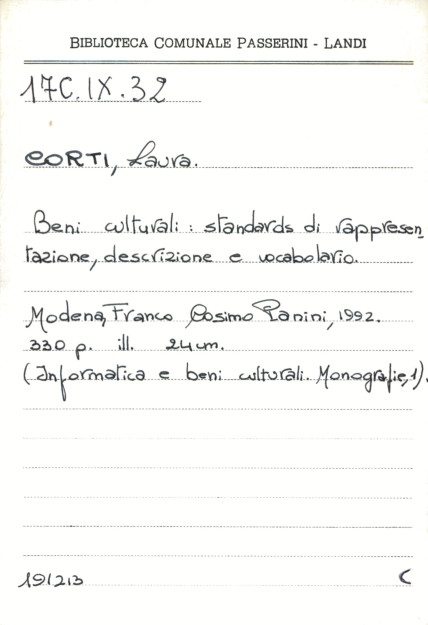 BIBLIOTECA COMUNALE PASSERINI - LANDI
17C.IX.32
CORTI, Laura.
Beni culturali : standards di rappresen
tazione, descrizione e vocabolario.
Modena, Franco Cosimo Panini, 1992.
330 p. ill. 24 cm.
(Informatica e beni culturali. Monografie, 1).
191213 C